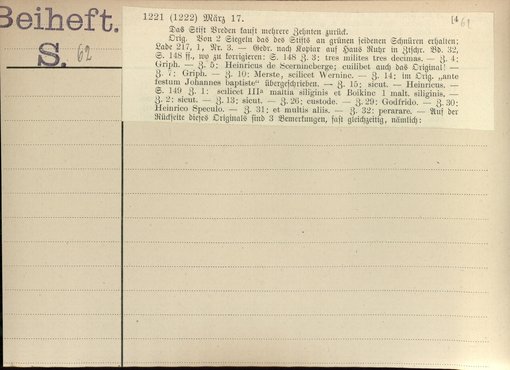 Beiheft.
S. 62
[4 61
1221 (1222) März 17.
Das Stift Vreden kauft mehrere Zehnten zurück.
Orig. Von 2 Siegeln das des Stifts an grünen seidenen Schnüren erhalten;
Lade 217, 1, Nr. 3. — Gedr. nach Kopiar auf Haus Ruhr in Ztschr. Bd. 32,
S. 148 ff., wo zu korrigieren: S. 148 Z. 3: tres milites tres decimas. — Z. 4:
Griph. — Z. 5: Heinricus de Scermincberge; cuilibet auch das Original! —
Z. 7: Griph. — Z. 10: Merste, scilicet Wernine. — Z. 14; im Orig. „ante
festum Johannes baptiste“ übergeschrieben. — Z. 15; sicut. — Heinricus. —
S. 149 Z. 1: scilicet IIIa maltia siliginis et Boikinc 1 malt. siliginis. —
Z. 2; sicut. — Z. 13; sicut. — Z. 26; custode. — Z. 29: Godfrido. — Z. 30;
Heinrico Speculo. — Z. 31; et multis aliis. — Z. 32: perarare. — Auf der
Rückseite dieses Originals sind 3 Bemerkungen, fast gleichzeitig, nämlich: